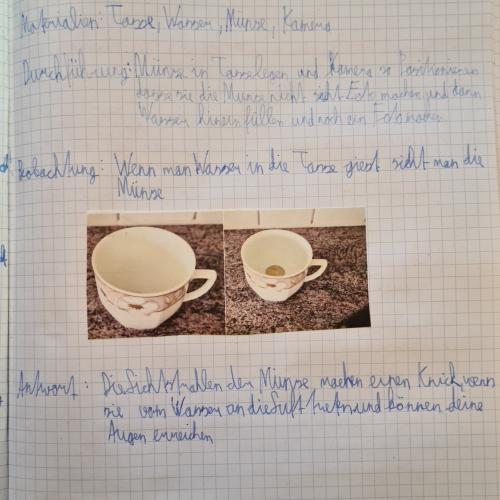 Materialien: Tasse, Wasser, Münze, Kamera
Durchführung: Münze in Tasse legen und Kamera so Positionieren
dass sie die Münze nicht sieht Foto machen und dann
Wasser hinein füllen und noch ein Foto machen
Beobachtung: Wenn man Wasser in die Tasse giest sieht man die
Münze
Antwort: Die Lichtstrahlen der Münze machen einen Knick, wenn
sie vom Wasser an die Luft treten und können deine
Augen erreichen